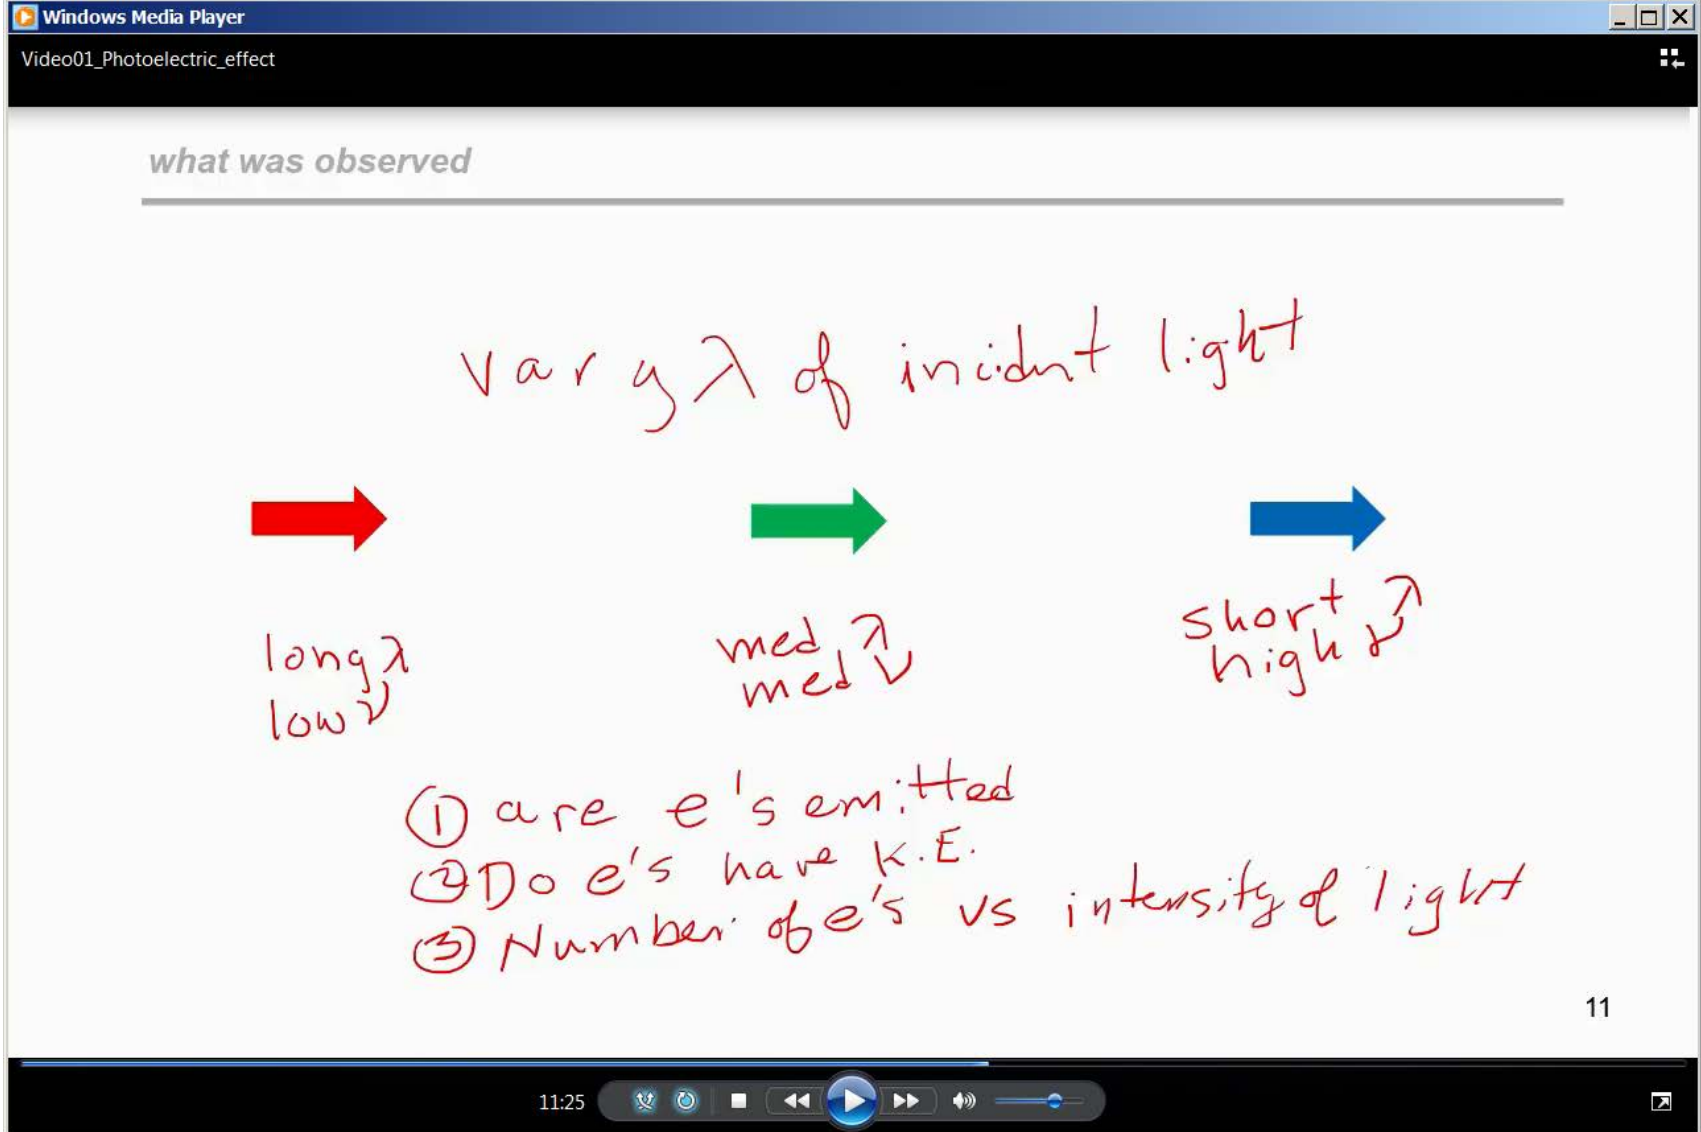 Windows Media Player
Video01_Photoelectric_effect
what was observed
vary λ of incident light
long λ
low ν
med λ
med ν
short λ
high ν
① are e's emitted
② Do e's have K.E.
③ Number of e's vs intensity of light
11
11:25